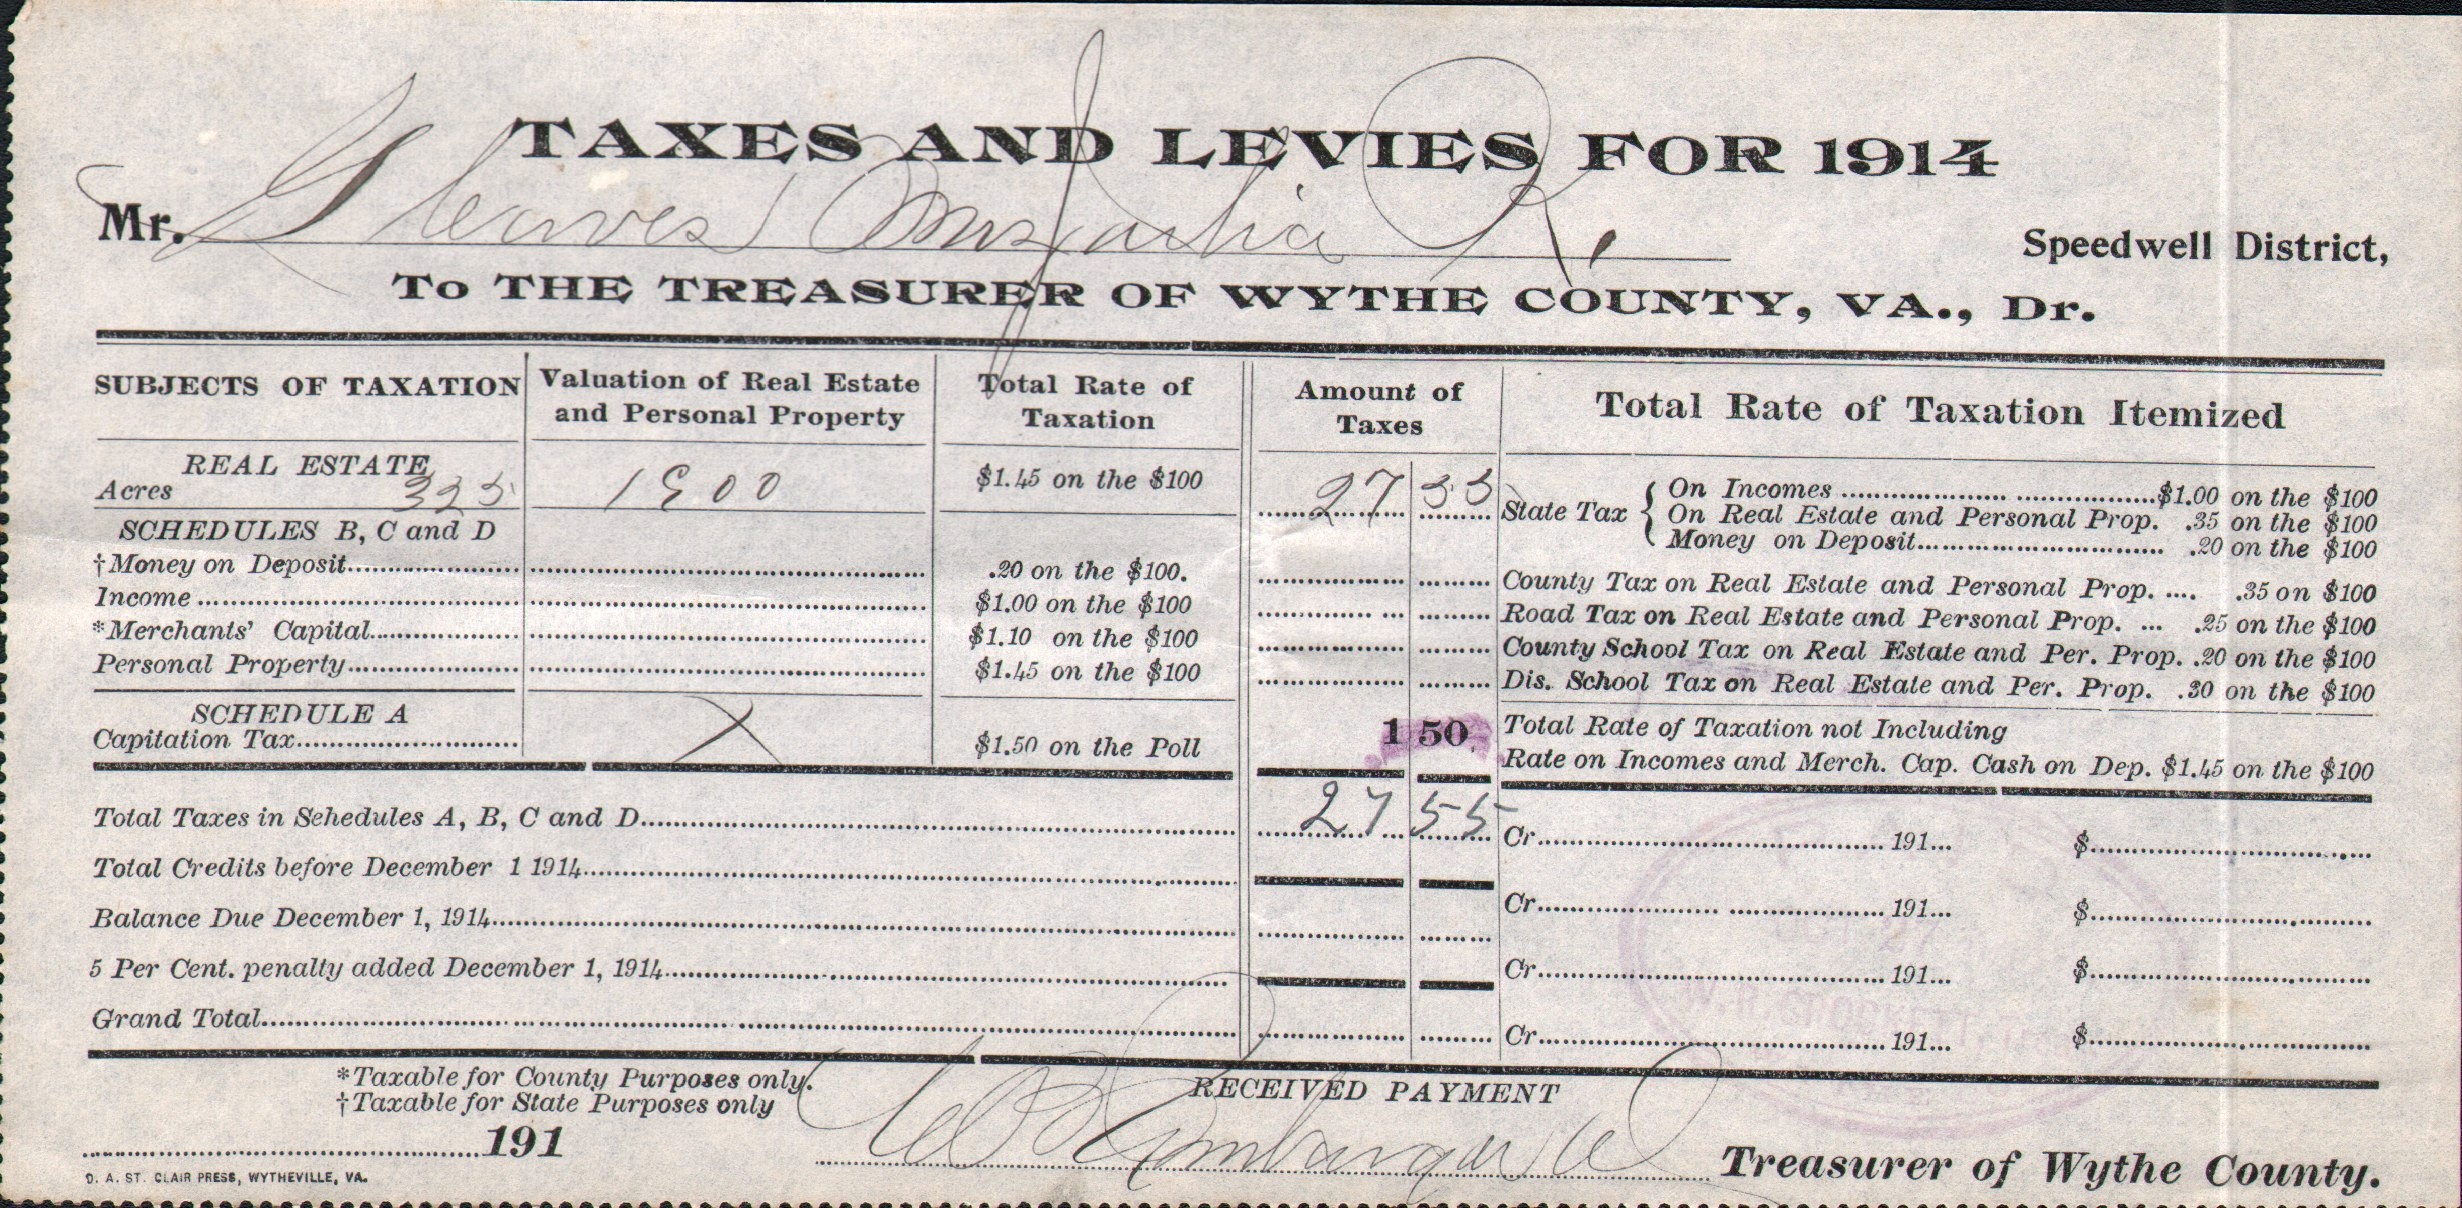 TAXES AND LEVIES FOR 1914
Mr. Gleaves Mrs Julia R. Speedwell District,
To THE TREASURER OF WYTHE COUNTY, VA., Dr.
SUBJECTS OF TAXATION Valuation of Real Estate and Personal Property Total Rate of Taxation Amount of Taxes Total Rate of Taxation Itemized
REAL ESTATE
Acres 325 1900 $1.45 on the $100 27 55
State Tax { On Incomes ........ $1.00 on the $100
On Real Estate and Personal Prop. .35 on the $100
Money on Deposit........ .20 on the $100
SCHEDULES B, C and D
†Money on Deposit........ .20 on the $100.
County Tax on Real Estate and Personal Prop. .... .35 on $100
Income ........ $1.00 on the $100
Road Tax on Real Estate and Personal Prop. ... .25 on the $100
*Merchants' Capital........ $1.10 on the $100
County School Tax on Real Estate and Per. Prop. .20 on the $100
Personal Property........ $1.45 on the $100
Dis. School Tax on Real Estate and Per. Prop. .30 on the $100
SCHEDULE A
Capitation Tax........ X $1.50 on the Poll 1 50
Total Rate of Taxation not Including
Rate on Incomes and Merch. Cap. Cash on Dep. $1.45 on the $100
Total Taxes in Sehedules A, B, C and D........ 27 55
Cr........191... $........
Total Credits before December 1 1914........
Cr........191... $........
Balance Due December 1, 1914........
5 Per Cent. penalty added December 1, 1914........
Cr........191... $........
Grand Total........
Cr........191... $........
*Taxable for County Purposes only.
†Taxable for State Purposes only
RECEIVED PAYMENT
........191
Treasurer of Wythe County.
D. A. ST. CLAIR PRESS, WYTHEVILLE, VA.